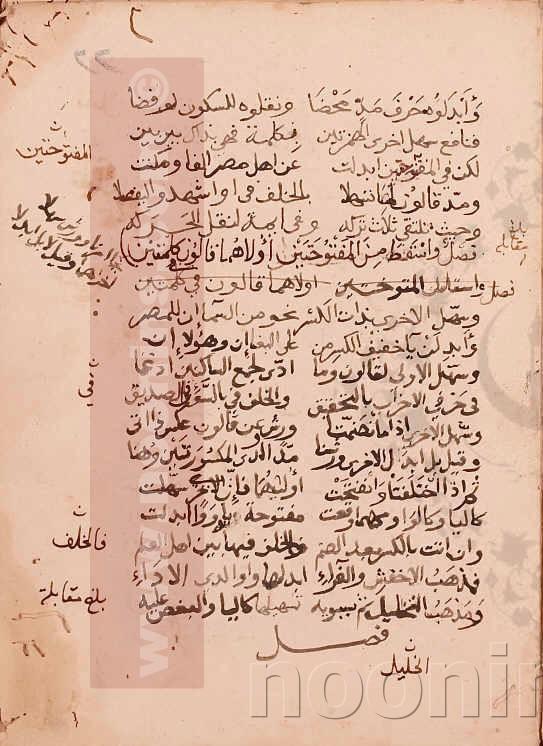 وأبدلوه حرف مد محضا ونقلوه للسكون رفضا
فنافع سهل اخرى الهمزتين بكلمة فهي بذاك بين بين
لكن في المفتوحتين ابدلت عن اهل مصر الفا ومكنت
ومد قالون لما تسهلا بالخلف في أواشهدوا ليفصلا
وحيث تلتقي ثلاث تركه وفي ايمة لنقل الحركة
فصل واسقط من المفتوحتين أولاهما قالون في كلمتين
فصل واسقط من المفتوحتين اولاهما قالون في كلمتين
وسهل الاخرى بذات الكسر نحو من السماء ان للمصر
وأبدلن ياء خفيف الكسر من على البغاء ان وهؤلاء ان
وسهل الاولى لقالون وما ادى لجمع الساكنين ادغما
في حرفي الاحزاب بالتحقيق والخلف في بالسوء في الصديق
وسهل الاخرى اذا ما انضمتا ورش وعن قالون عكس ذا اتى
وقيل بل ابدل الاخرى ورشنا مدا لدى المكسورتين وهنا
ثم اذا اختلفتا وانفتحت أولاهما فان الاخرى سهلت
كاليا وكالواو ومهما وقعت مفتوحة ياء وواوا ابدلت
وان اتت بالكسر بعد الضم فالخلف فيها بين اهل العلم
فمذهب الاخفش والقراء ابدالها واوا لدى الاداء
ومذهب الخليل ثم سيبويه تسهيلها كاليا والبعض عليه
فصل
المفتوحتين
بلغ مقابلة
في
فالخلف
بلغ مقابلة
الخليل
noonin